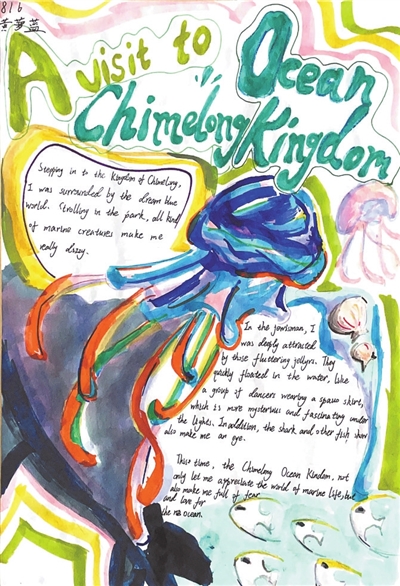 816
黄梦蓝
A visit to
Ocean
Chimelong Kingdom
Stepping in to the Kingdom of Chimelong,
I was surrounded by the dream blue
world. Strolling in the park, all kind
of marine creatures make me
really dizzy.
In the jowlsman, I
was deeply attracted
by those flustering jellyrs. They
quickly floated in the water, like
a group of dancers wearing a spauo skirt,
which is more mysterious and fascinating under
the lights. In addition, the shark and other fish show
also make me an gre.
This time, the Chimelong Ocean Kindom, not
only let me appreciate the world of marine life, but
also make me full of fear
and love for
the ocean.